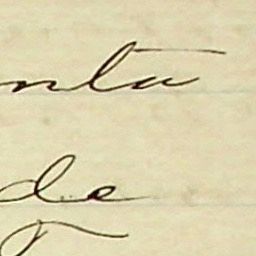 nta
de